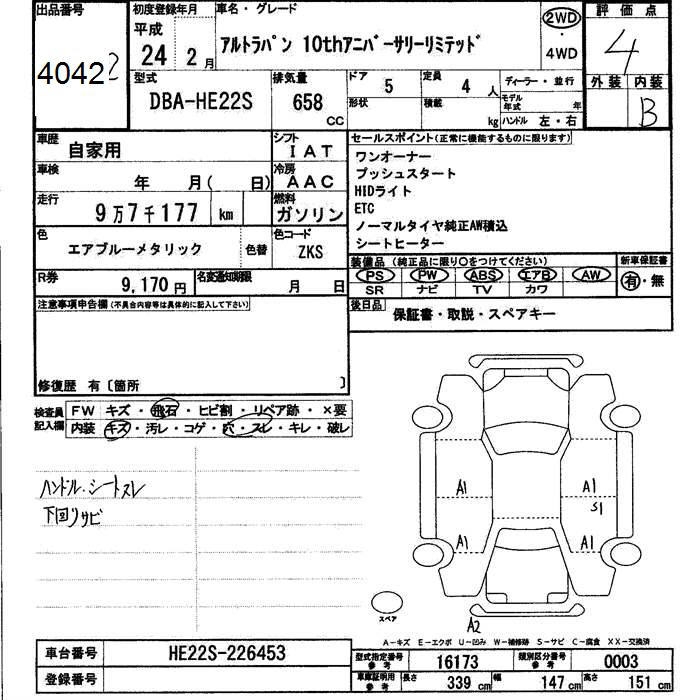 出品番号
4042
初度登録年月
平成
24年 2月
車名・グレード
アルトラパン 10thアニバーサリーリミテッド
2WD
・
4WD
評価点
4
外装 内装
B
型式
DBA-HE22S
排気量
658
CC
ドア 5
定員 4 人
ディーラー・並行
形状
積載 kg
モデル年式 年
ハンドル 左・右
車歴
自家用
シフト
IAT
車検
年 月( 日)
冷房
AAC
走行
9万7千177 km
燃料
ガソリン
色
エアブルーメタリック
色替
色コード
ZKS
R券
9,170円
名変通知期限
月 日
セールスポイント(正常に機能するものに限ります)
ワンオーナー
プッシュスタート
HIDライト
ETC
ノーマルタイヤ純正AW積込
シートヒーター
装備品 (純正品に限り○をつけてください)
新車保証書
PS PW ABS エアB AW
有・無
SR ナビ TV カワ
後日品
保証書・取説・スペアキー
注意事項申告欄(不具合内容等は具体的に記入して下さい)
修復歴 有〔箇所 〕
検査員
記入欄
FW キズ・飛石・ヒビ割・リペア跡・×要
内装 キズ・汚レ・コゲ・穴・スレ・キレ・破レ
ハンドル・シートスレ
下回りサビ
A1 A1
S1
A1 A1
スペア
A2
A-キズ E-エクボ U-凹み W-補修跡 S-サビ C-腐食 XX-交換済
車台番号
HE22S-226453
登録番号
型式指定番号
参考
16173
類別区分番号
参考
0003
車庫証明用
参考
長さ 339 cm 幅 147 cm 高さ 151 cm